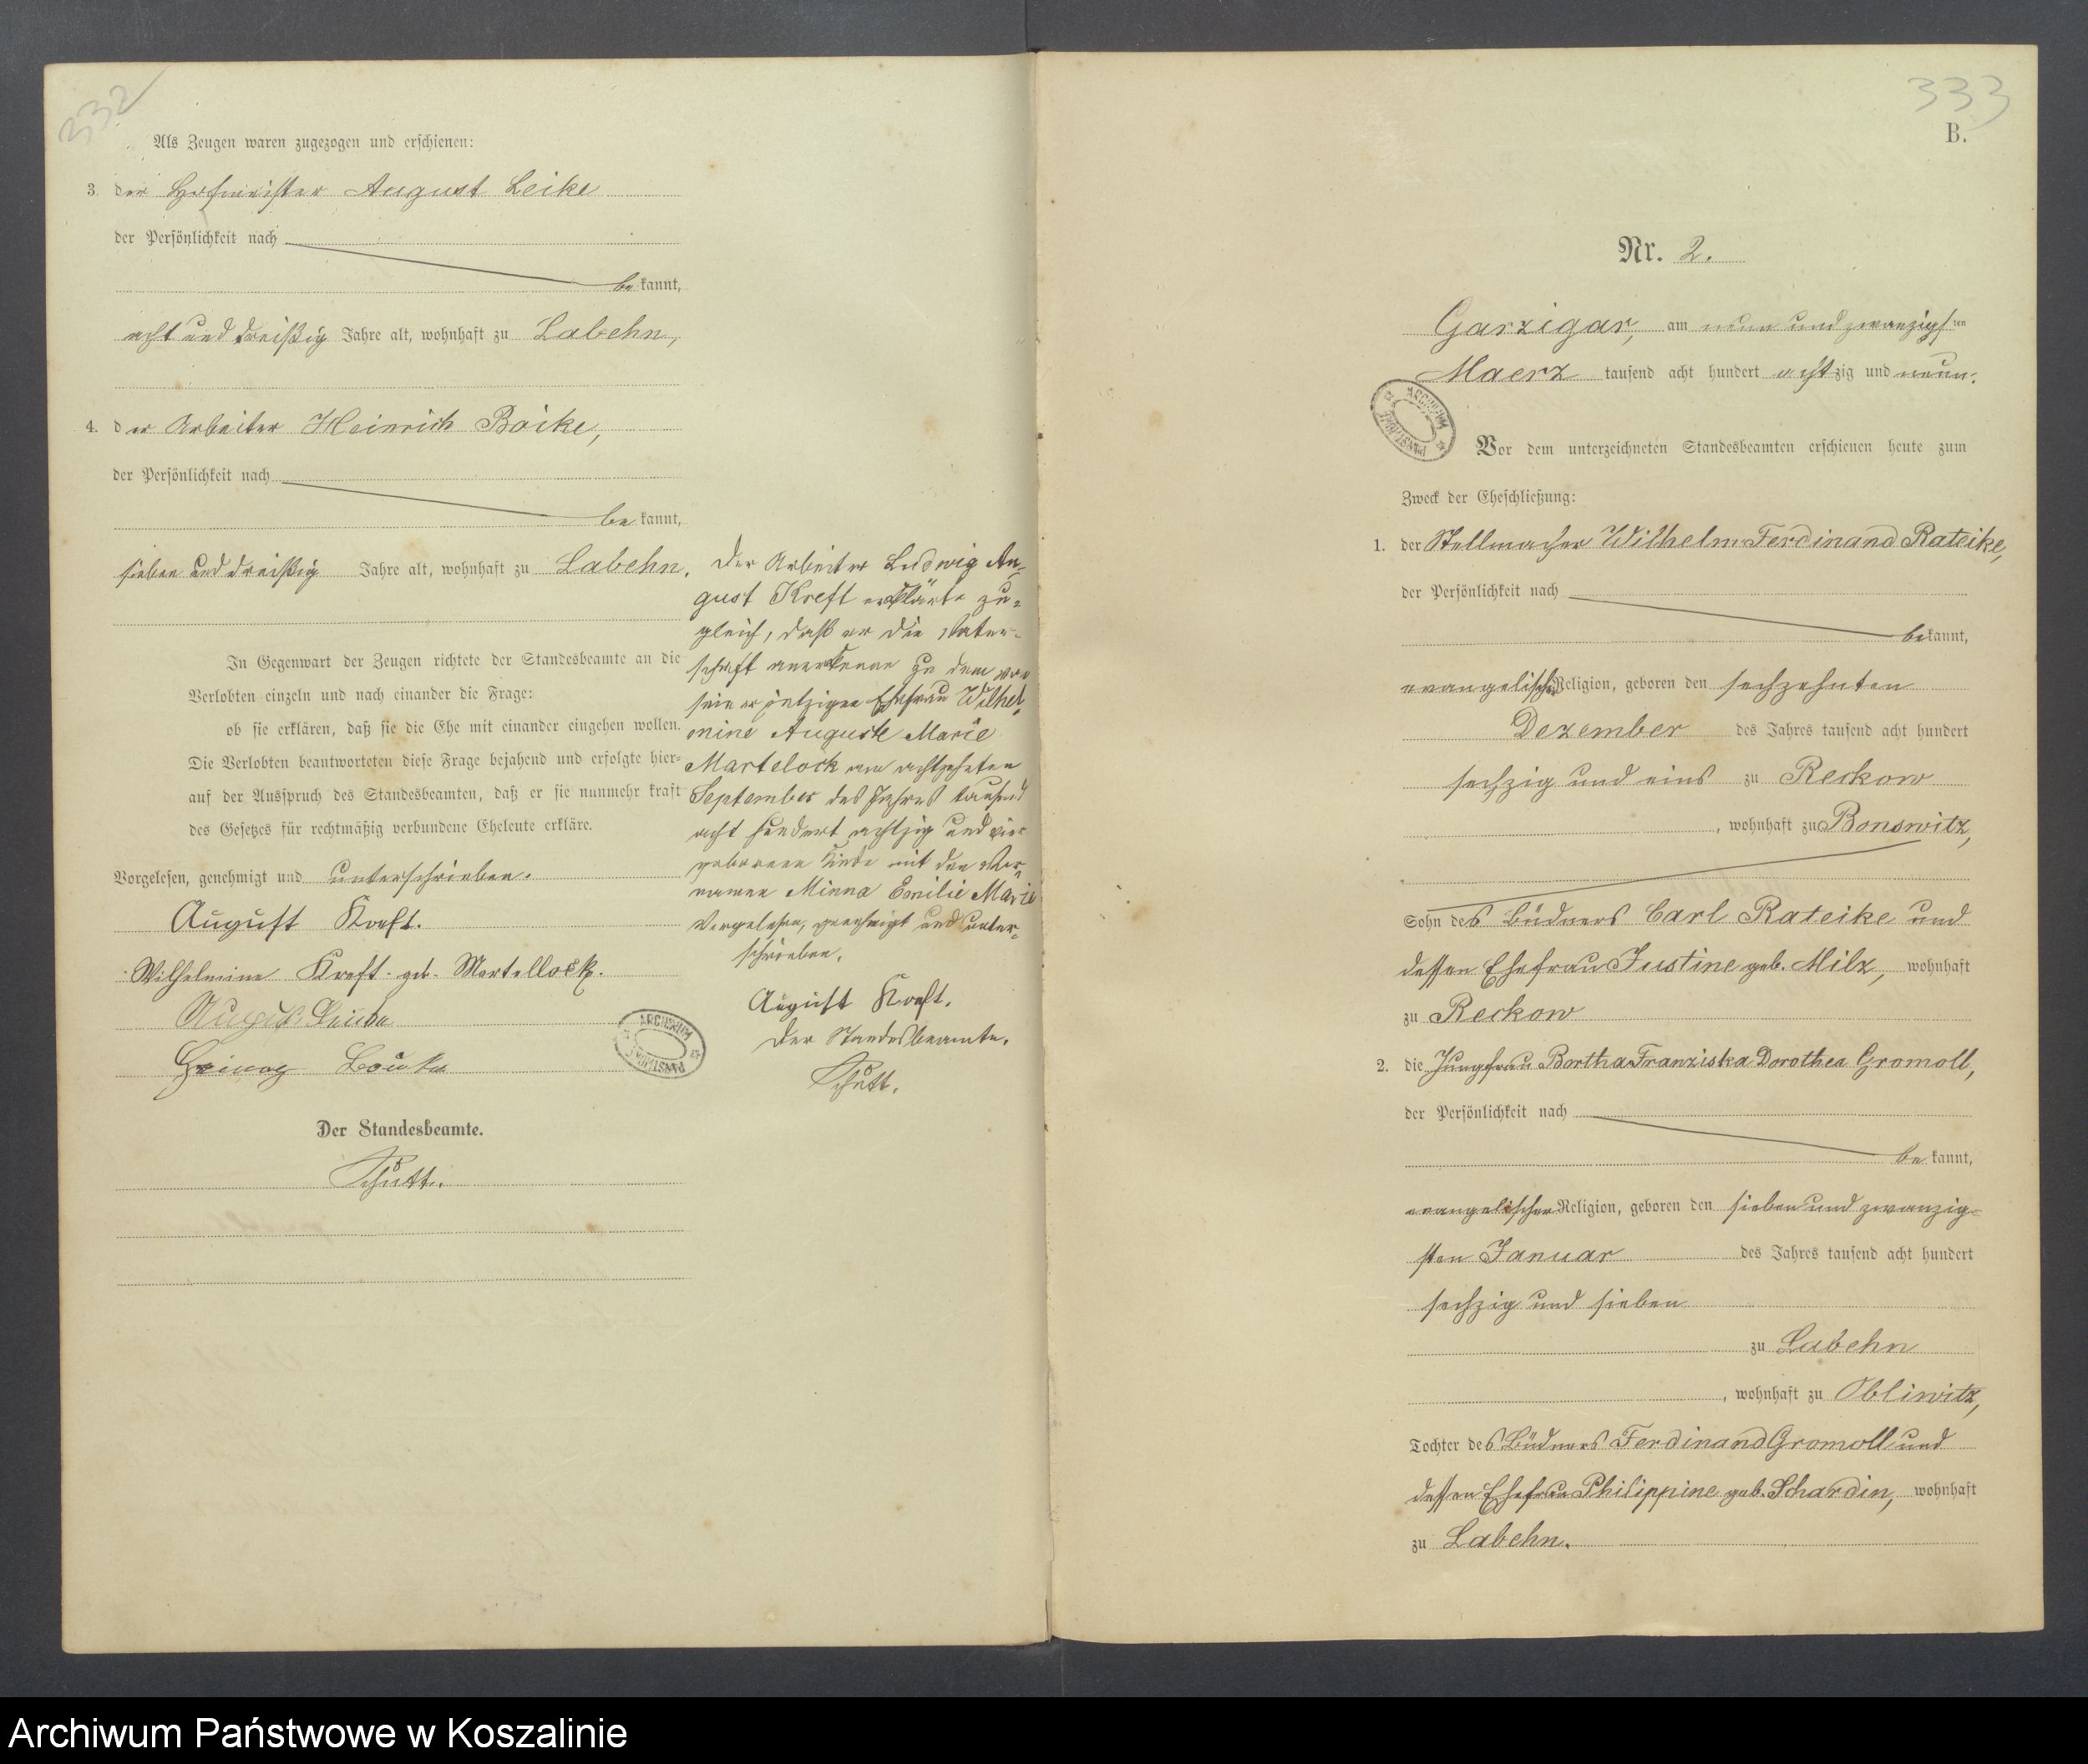 332
Als Zeugen waren zugezogen und erschienen:
3. der Hofmeister August Leike
der Persönlichkeit nach
bekannt,
acht und dreißig Jahre alt, wohnhaft zu Labehn,
4. der Arbeiter Heinrich Boike,
der Persönlichkeit nach
bekannt,
sieben und dreißig Jahre alt, wohnhaft zu Labehn.
In Gegenwart der Zeugen richtete der Standesbeamte an die
Verlobten einzeln und nach einander die Frage:
ob sie erklären, daß sie die Ehe mit einander eingehen wollen.
Die Verlobten beantworteten diese Frage bejahend und erfolgte hier-
auf der Ausspruch des Standesbeamten, daß er sie nunmehr kraft
des Gesetzes für rechtmäßig verbundene Eheleute erkläre.
Vorgelesen, genehmigt und unterschrieben.
August Kreft.
Wilhelmine Kreft geb. Martellock.
August
Der Standesbeamte.
Schütt.
Der Arbeiter Ludwig Au-
gust Kreft erklärte zu-
gleich, daß er die Vater-
schaft anerkenne zu dem von
seiner jetzigen Ehefrau Wilhel-
mine Auguste Marie
Martelock am achtzehnten
September des Jahres tausend
acht hundert achtzig und vier
geborenen Kinde mit den Vor-
namen Minna Emilie Marie
Vorgelesen, genehmigt und unter-
schrieben.
August Kreft.
Der Standesbeamte.
Schütt.
ARCHIWUM PAŃSTWOWE
333
B.
Nr. 2.
Garzigar, am neun und zwanzigsten
Maerz tausend acht hundert achtzig und neun.
ARCHIWUM PAŃSTWOWE
Vor dem unterzeichneten Standesbeamten erschienen heute zum
Zweck der Eheschließung:
1. der Stellmacher Wilhelm Ferdinand Rateike,
der Persönlichkeit nach
bekannt,
evangelischer Religion, geboren den sechzehnten
Dezember des Jahres tausend acht hundert
sechzig und eins zu Reckow
, wohnhaft zu Bonswitz,
Sohn des Büdners Carl Rateike und
dessen Ehefrau Justine geb. Milz, wohnhaft
zu Reckow
2. die Jungfrau Bertha Franziska Dorothea Gromoll,
der Persönlichkeit nach
bekannt,
evangelischer Religion, geboren den sieben und zwanzig-
sten Januar des Jahres tausend acht hundert
sechzig und sieben
zu Labehn
, wohnhaft zu Obliwitz,
Tochter des Büdners Ferdinand Gromoll und
dessen Ehefrau Philippine geb. Schardin, wohnhaft
zu Labehn.
Archiwum Państwowe w Koszalinie